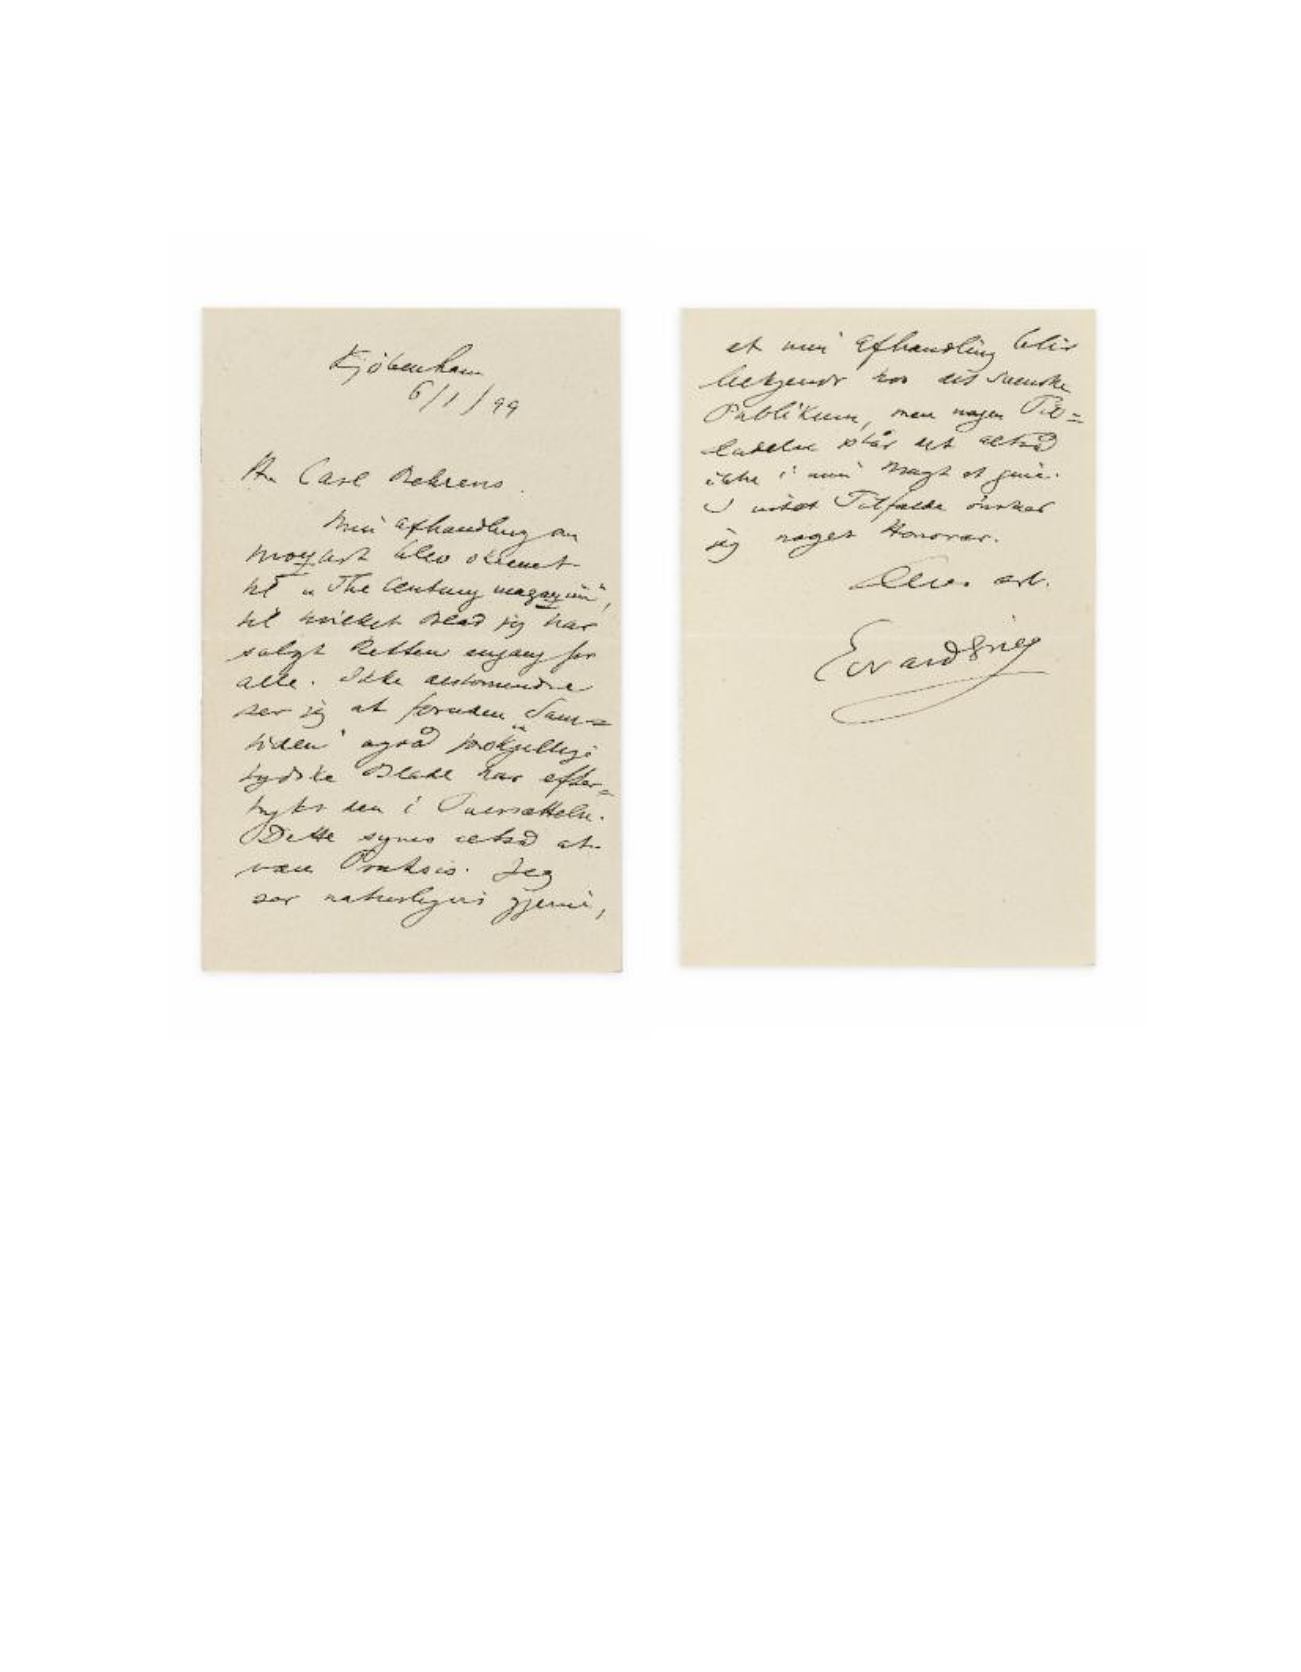 Kjöbenhavn
6/1/99
Hr. Carl Behrens.
Min Afhandling om
Mozart blev skrevet
til „The Century magazine",
til hvilket Blad jeg har
solgt Retten engang for
alle. Ikke destomindre
ser jeg at foruden „Sam=
tiden" også forskjellige
tydske Blade har efter=
trykt den i Oversættelse.
Dette synes altså at
være Praksis. Jeg
ser naturligvis gjerne,
at min Afhandling blir
bekjendt hos det svenske
Publikum, men nogen Til=
ladelse står det altså
ikke i min Magt at give.
I intet Tilfælde önsker
jeg noget Honorar.
Deres erb.
Edvard Grieg